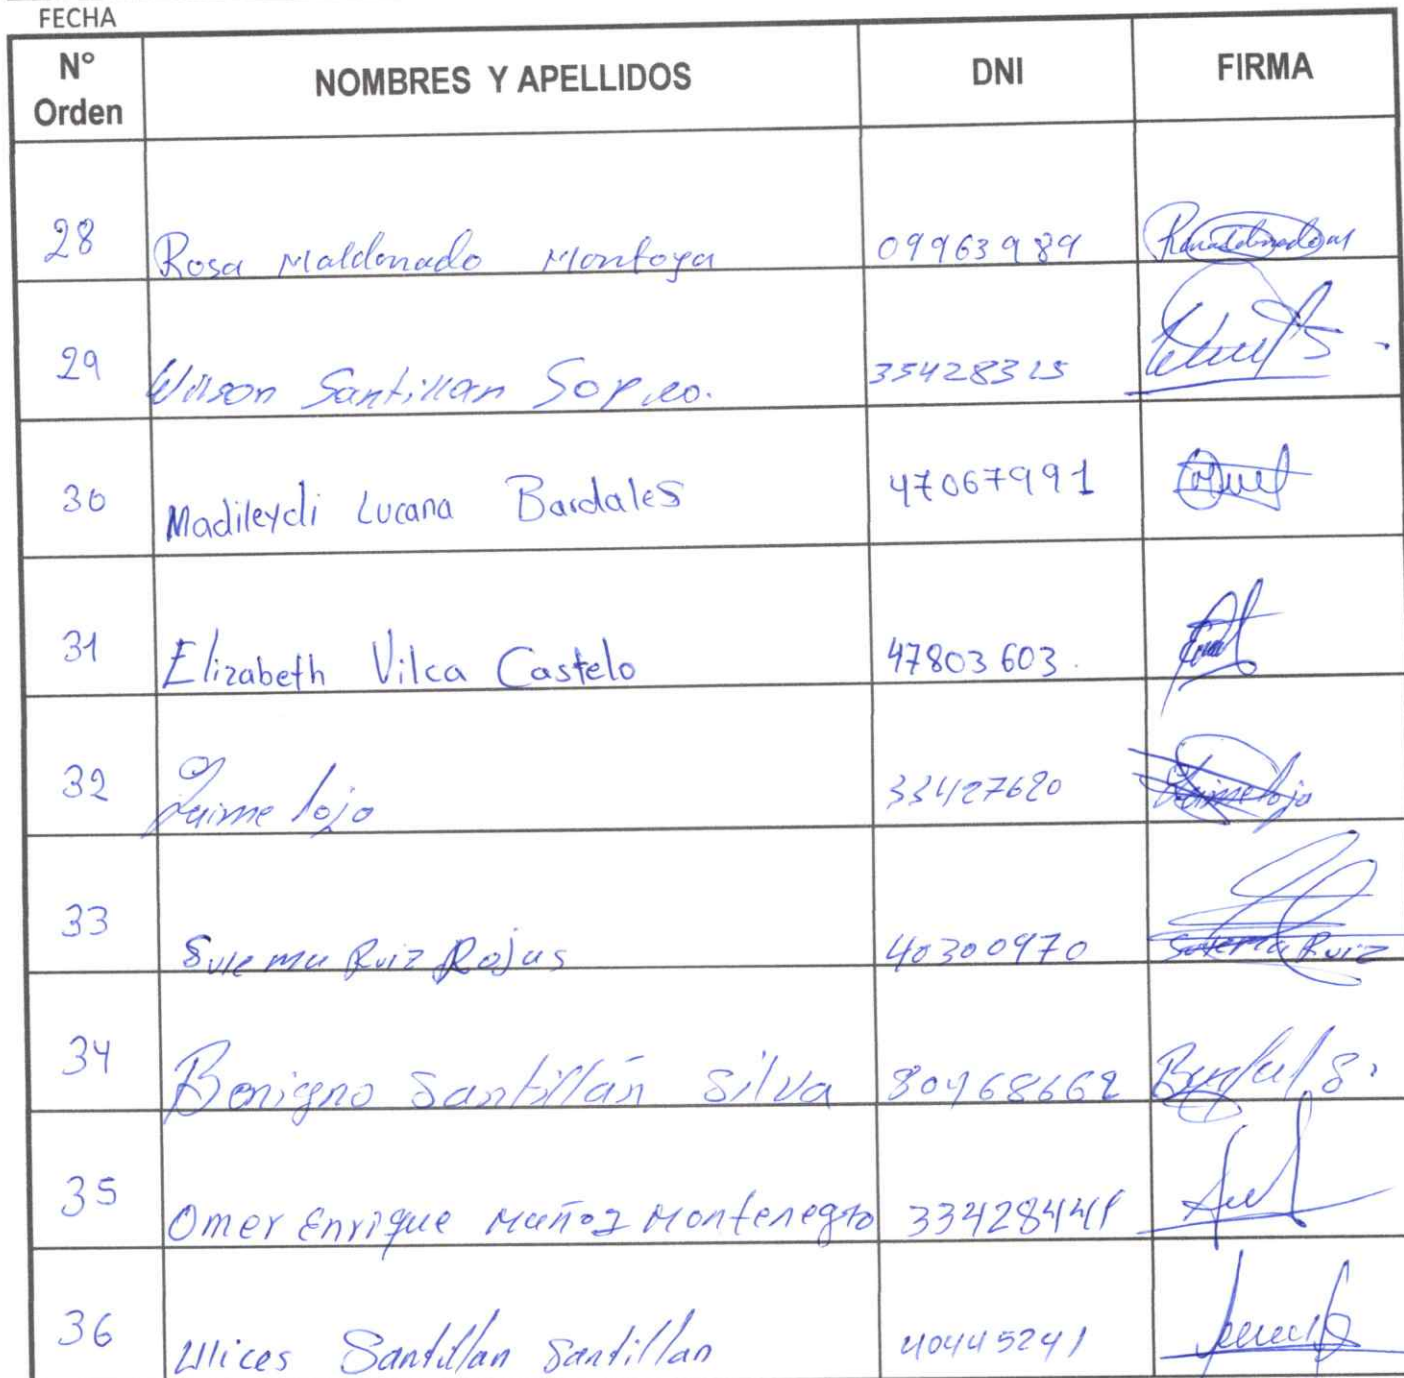 FECHA
N° Orden NOMBRES Y APELLIDOS DNI FIRMA
28 Rosa Maldonado Montoya 09963989
29 Wilson Santillan Sopleo. 33428315
30 Madileydi Lucana Bardales 47067991
31 Elizabeth Vilca Castelo 47803603.
32 Jaime lojo 33427620 Jaime lojo
33 Sulema Ruiz Rojas 40300970 Sulema Ruiz
34 Benigno Santillán Silva 80468662
35 Omer Enrique Muñoz Montenegro 33428441
36 Ulices Santillan Santillan 40445241